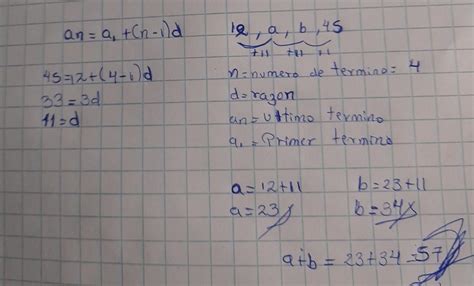 an = a₁ + (n-1)d
45 = 12 + (4-1)d
33 = 3d
11 = d
12, a, b, 45
+11 +11 +11
n = numero de termino = 4
d = razon
an = ultimo termino
a₁ = Primer termino
a = 12 + 11
a = 23
b = 23 + 11
b = 34
a + b = 23 + 34 = 57